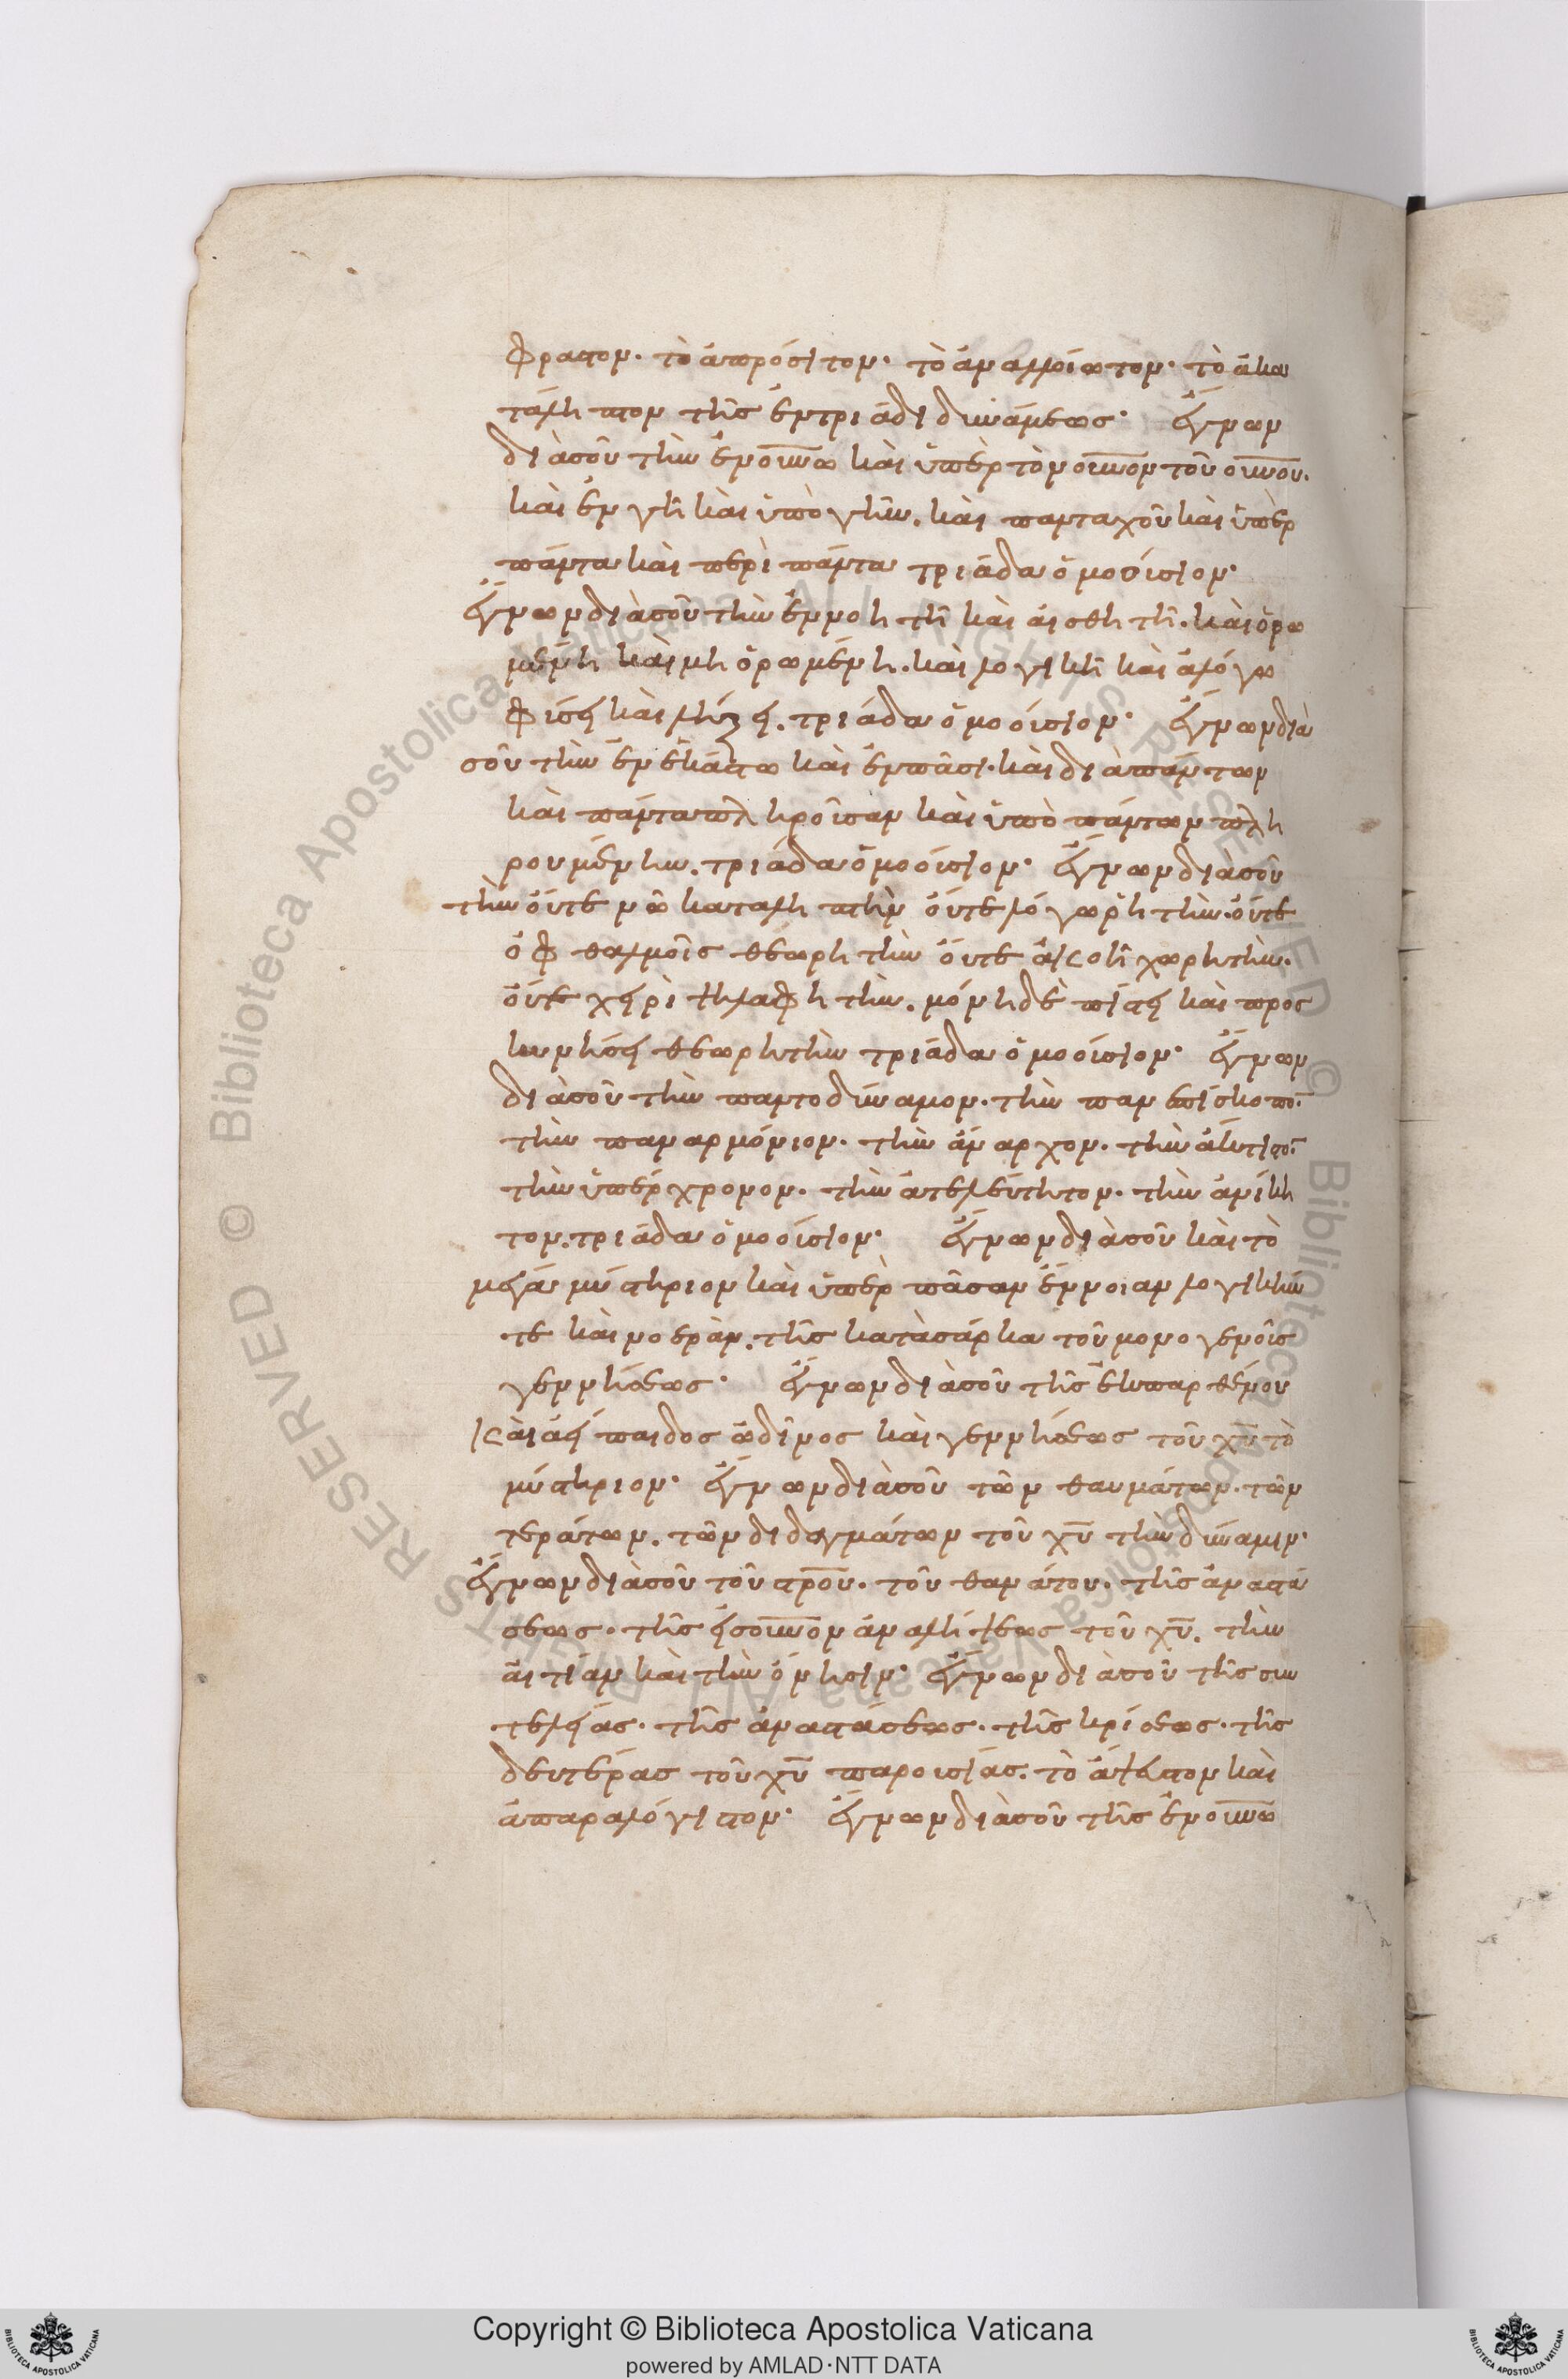 φραστον· τὸ ἀπρόσιτον· τὸ ἀναλλοίωτον· τὸ ἀκα
τάληπτον τῆς ἐν τριάδι δυνάμεως· ἔγνων
διὰ σοῦ τὴν ἐν οὐνῶ καὶ ὑπὲρ τὸν οὐνον τοῦ οὐνου.
καὶ ἐν γῆ καὶ ὑπὸ γῆν. καὶ πανταχοῦ καὶ ὑπὲρ
πάντα καὶ περὶ πάντα τριάδα ὁμοούσιον·
ἔγνων διὰ σοῦ τὴν ἐν νοητῆ καὶ αἰσθητῆ. καὶ ὁρω
μένη καὶ μὴ ὁρωμένη. καὶ λογικῆ καὶ ἀλόγω
φύσει καὶ λήξει. τριάδα ὁμοούσιον· ἔγνων διὰ
σοῦ τὴν ἐν ἑκάστω καὶ ἐν πᾶσι. καὶ διὰ πάντων
καὶ πάντα πληροῦσαν καὶ ὑπὸ πάντων πλη
ρουμένην. τριάδα ὁμοούσιον· ἔγνων διὰ σοῦ
τὴν οὔτε νῶ καταληπτὴν οὔτε λόγω ῥητὴν. οὔτε
ὀφθαλμοῖς θεωρητὴν οὔτε ἀκοῆ χωρητὴν.
οὔτε χειρὶ ψηλαφητὴν. μόνη δὲ πίστει καὶ προσ
κυνήσει θεωρητὴν τριάδα ὁμοούσιον· ἔγνων
διὰ σοῦ τὴν παντοδύναμον. τὴν πανεπίσκοπο
τὴν παναρμόνιον. τὴν ἄναρχον. τὴν ἄκτιστο
τὴν ὑπέρχρονον. τὴν ἀτελεύτητον. τὴν ἀνίκη
τον. τριάδα ὁμοούσιον· ἔγνων διὰ σοῦ καὶ τὸ
μέγα μυστήριον καὶ ὑπὲρ πᾶσαν ἔννοιαν λογικήν
τε καὶ νοερὰν. τῆς κατὰ σάρκα τοῦ μονογενοῦς
γεννήσεως· ἔγνων διὰ σοῦ τῆς ἐκ παρθένου
καὶ ἀειπαιδος ὠδῖνος καὶ γεννήσεως τοῦ χυ τὸ
μυστήριον· ἔγνων διὰ σοῦ τῶν θαυμάτων. τῶν
τεράτων. τῶν διδαγμάτων τοῦ χυ τὴν δύναμιν·
ἔγνων διὰ σοῦ τοῦ στρου. τοῦ θανάτου. τῆς ἀναστά
σεως. τῆς εἰς οὐνον ἀναλήψεως τοῦ χυ. τὴν
αἰτίαν καὶ τὴν ὄνησιν· ἔγνων διὰ σοῦ τῆς συν
τελείας. τῆς ἀναστάσεως. τῆς κρίσεως. τῆς
δευτέρας τοῦ χυ παρουσίας. τὸ ἄψευστον καὶ
ἀπαραλόγιστον· ἔγνων διὰ σοῦ τῆς ἐν οὐνῶ